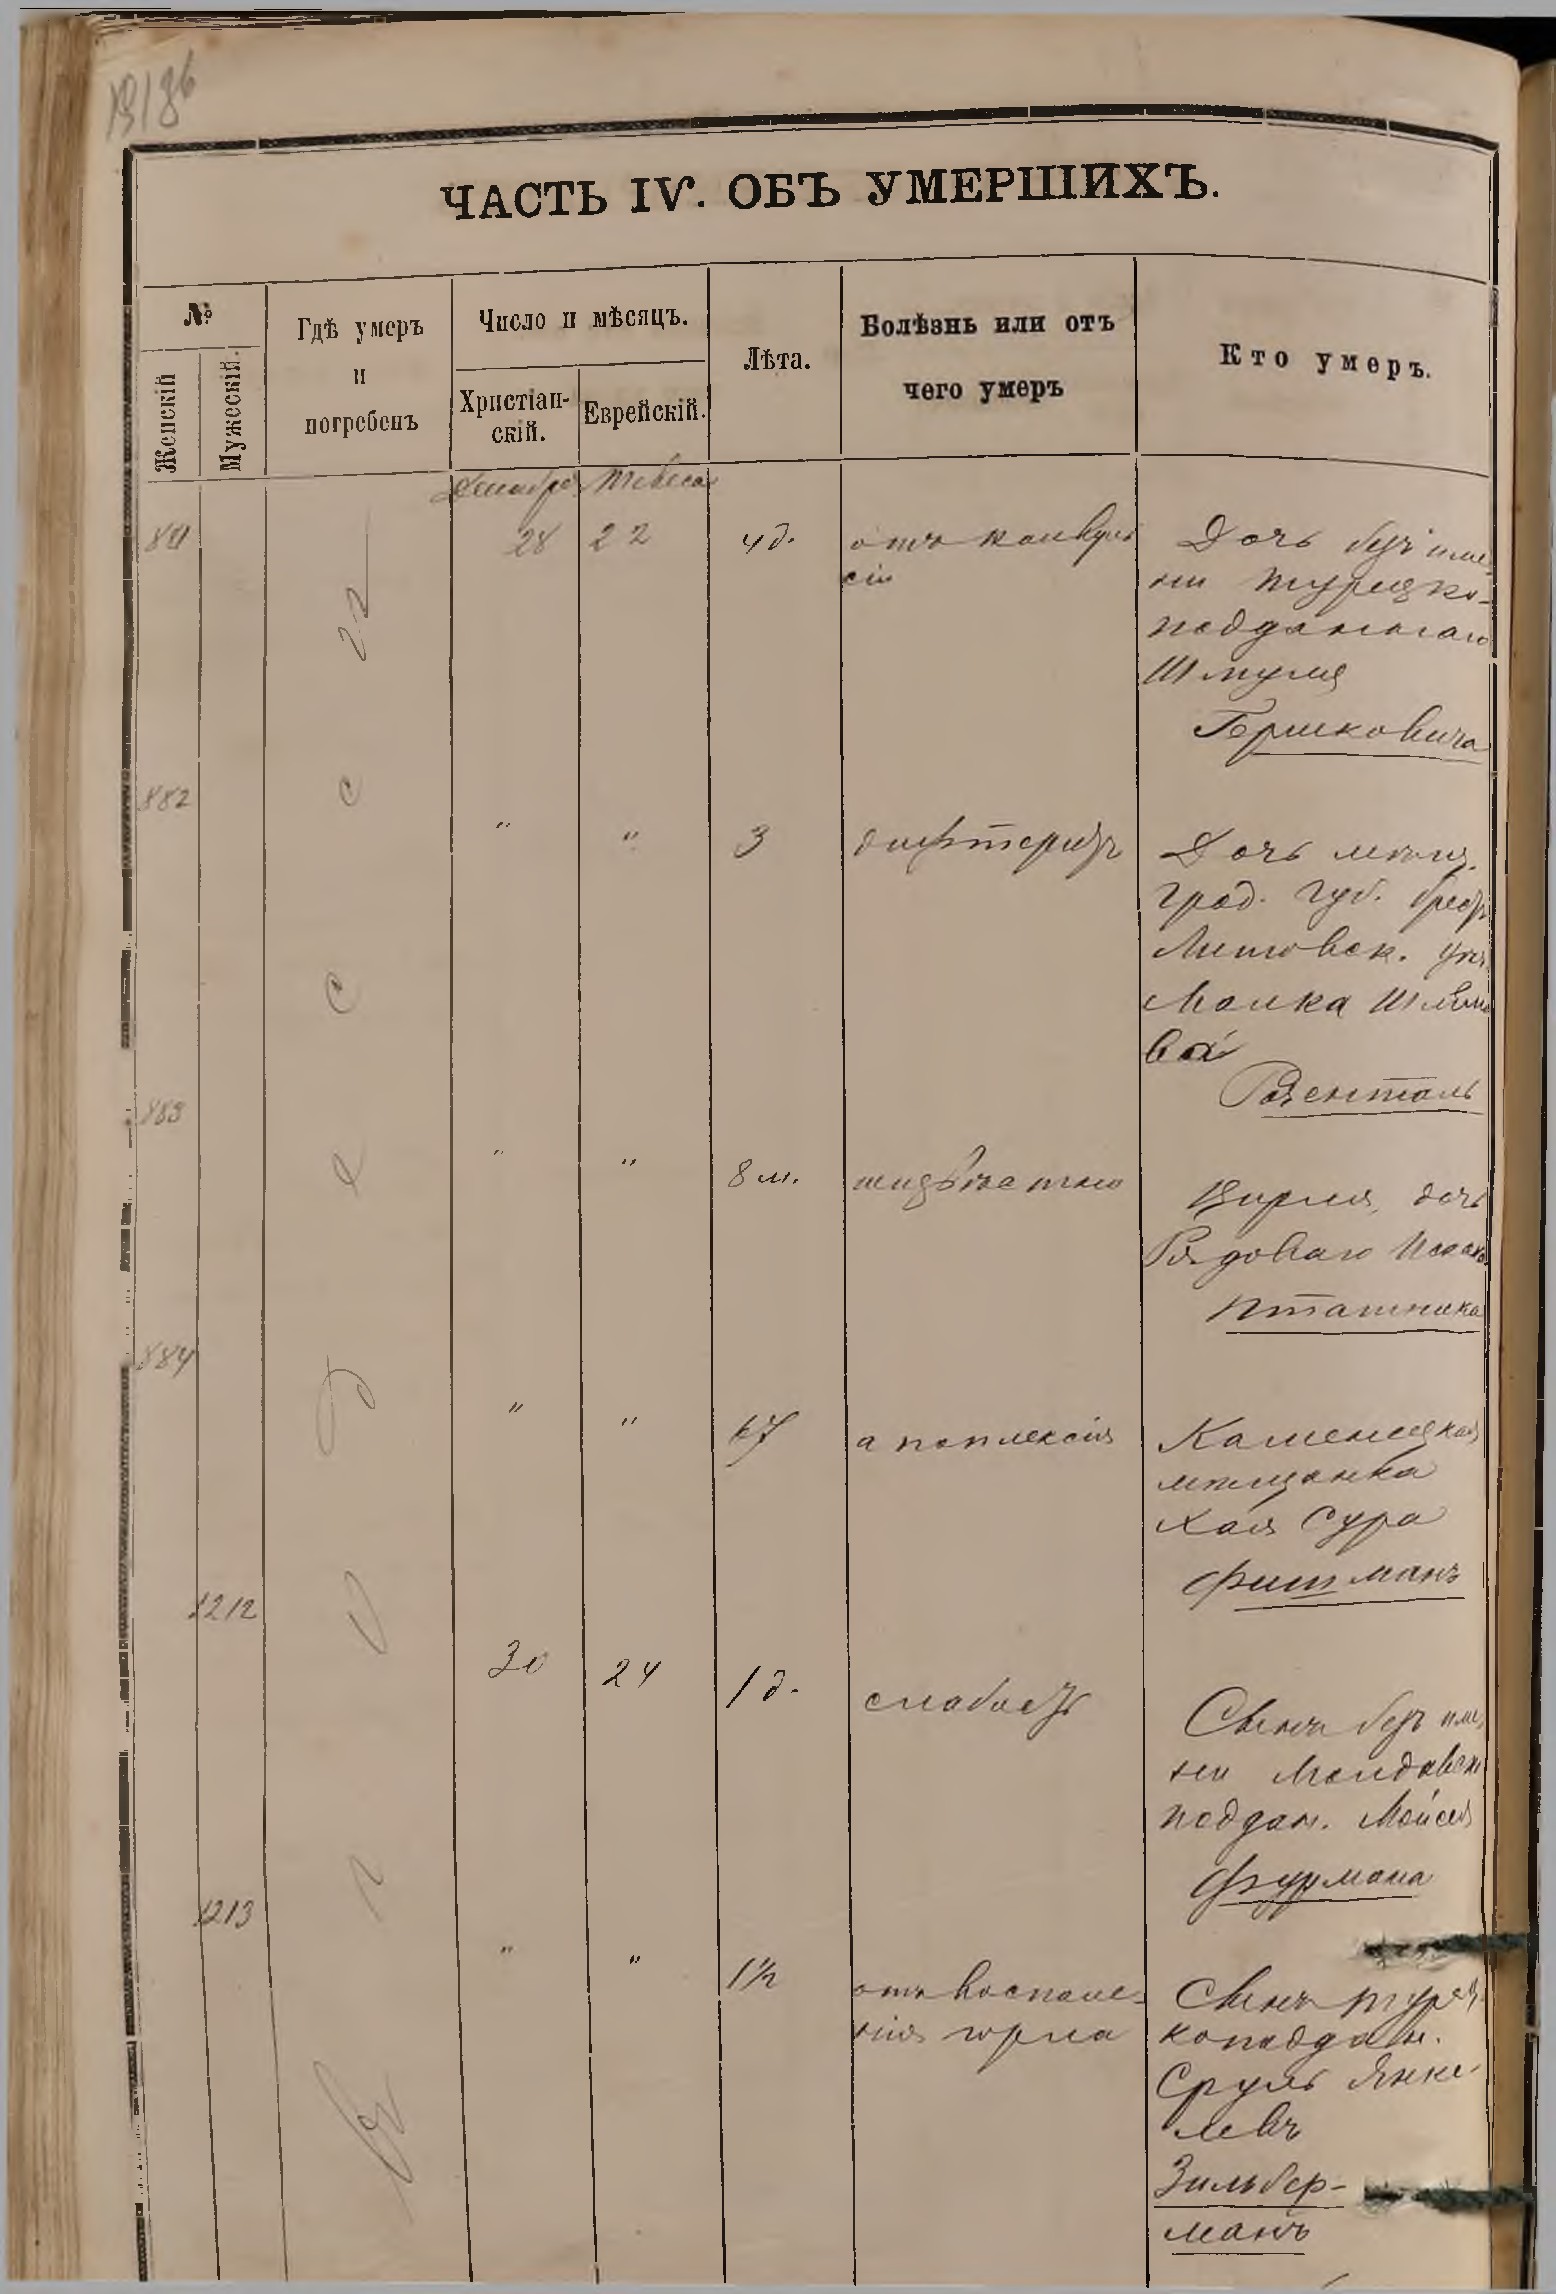 ЧАСТЬ IV. ОБЪ УМЕРШИХЪ.
№
Женскій
Мужескій.
Гдѣ умеръ
и
погребенъ
Число и мѣсяцъ.
Христіан-
скій.
Еврейскій.
Лѣта.
Болѣзнь или отъ
чего умеръ
Кто умеръ.
Декабря Тебеса
28 22 4 д. отъ конвуль
сіи
Дочь безъ име-
ни турецко-
подданнаго
Шмуля
Гершковича
882
" " 3 дифтеритъ
Дочь мѣщ.
Грод. губ. Брест
Литовск. уѣз
Малка Шлёмо
ва
Розенталь
883
" " 8 м. неизвѣстно
Цирля, дочь
Рядоваго Исаака
Пташника
884
" " 67 апоплексія
Каменецкая
мѣщанка
Хая Сура
Фишманъ
1212
30 24 1 д. слабость
Сынъ безъ име
ни Молдавск
поддан. Мойсея
Фурмана
1213
" " 1½ отъ воспале-
нія горла
Сынъ турец-
коподдан.
Сруль Янке-
левъ
Зильбер-
манъ
въ Одессѣ